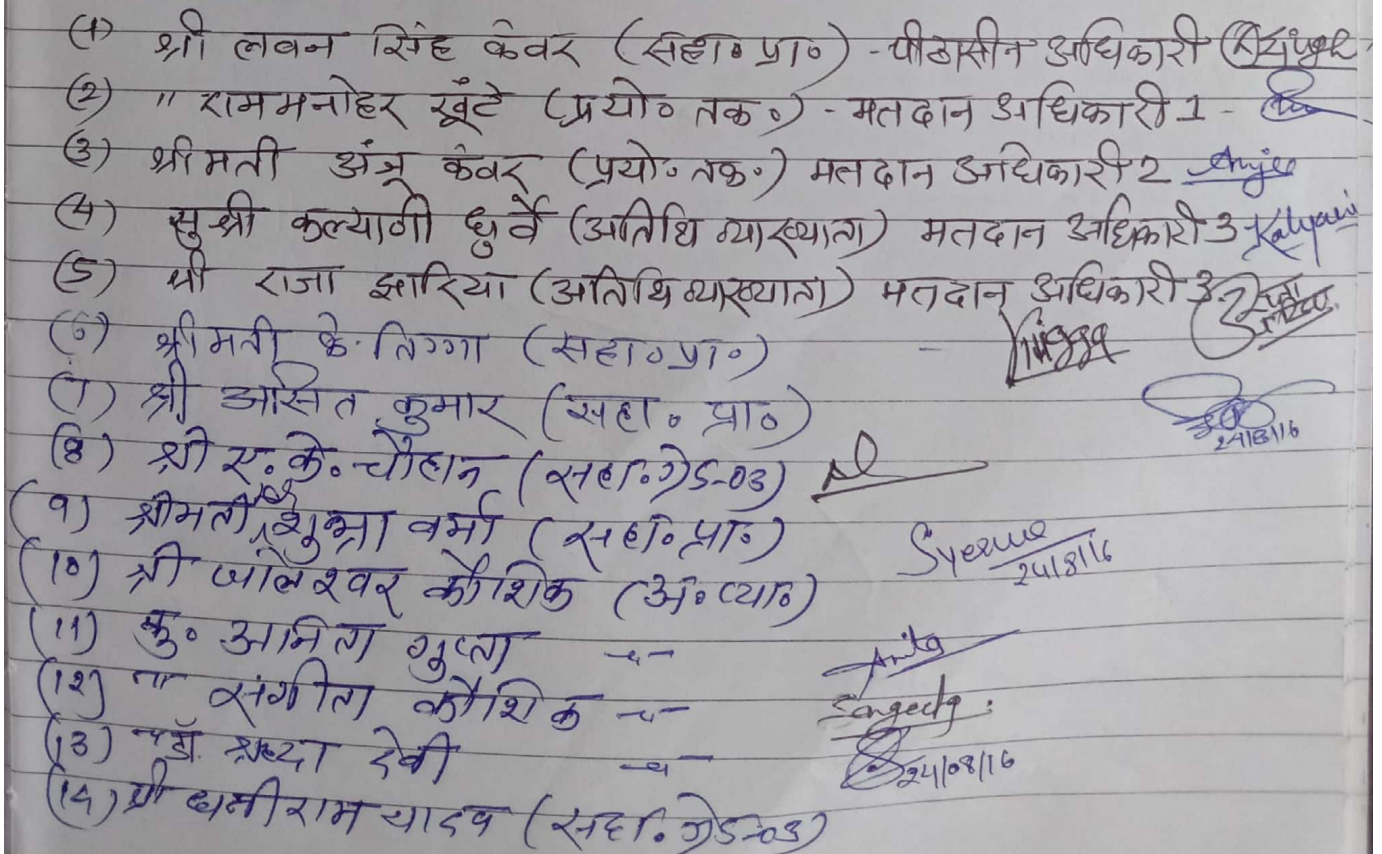 (1) श्री लवन सिंह कंवर (सहा० प्रा०) - पीठासीन अधिकारी
(2) " राममनोहर खूंटे (प्रयो० तक०) - मतदान अधिकारी 1 -
(3) श्रीमती अंजू कंवर (प्रयो० तक०) मतदान अधिकारी 2 Anju
(4) सुश्री कल्याणी धुर्वे (अतिथि व्याख्याता) मतदान अधिकारी 3 Kalyani
(5) श्री राजा झारिया (अतिथि व्याख्याता) मतदान अधिकारी 3
(6) श्रीमती के. तिग्गा (सहा० प्रा०) - Tigga
(7) श्री असित कुमार (सहा० प्रा०) 24/8/16
(8) श्री ए. के. चौहान (सहा. ग्रेड-03)
(9) श्रीमती शुभ्रा वर्मा (सहा. प्रा.) 24/8/16
(10) श्री जलेश्वर कौशिक (अ. व्या.)
(11) कु. अनिता गुप्ता -"- Anita
(12) " संगीता कौशिक -"- Sangeeta
(13) " डॉ. श्रध्दा देवी -"- 24/08/16
(14) श्री धनीराम यादव (सहा. ग्रेड-03)